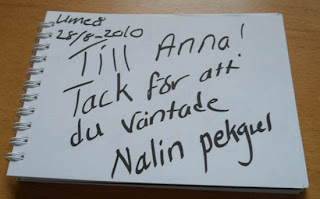 Umeå
28/8-2010
Till Anna!
Tack för att
du väntade
Nalin pekgul